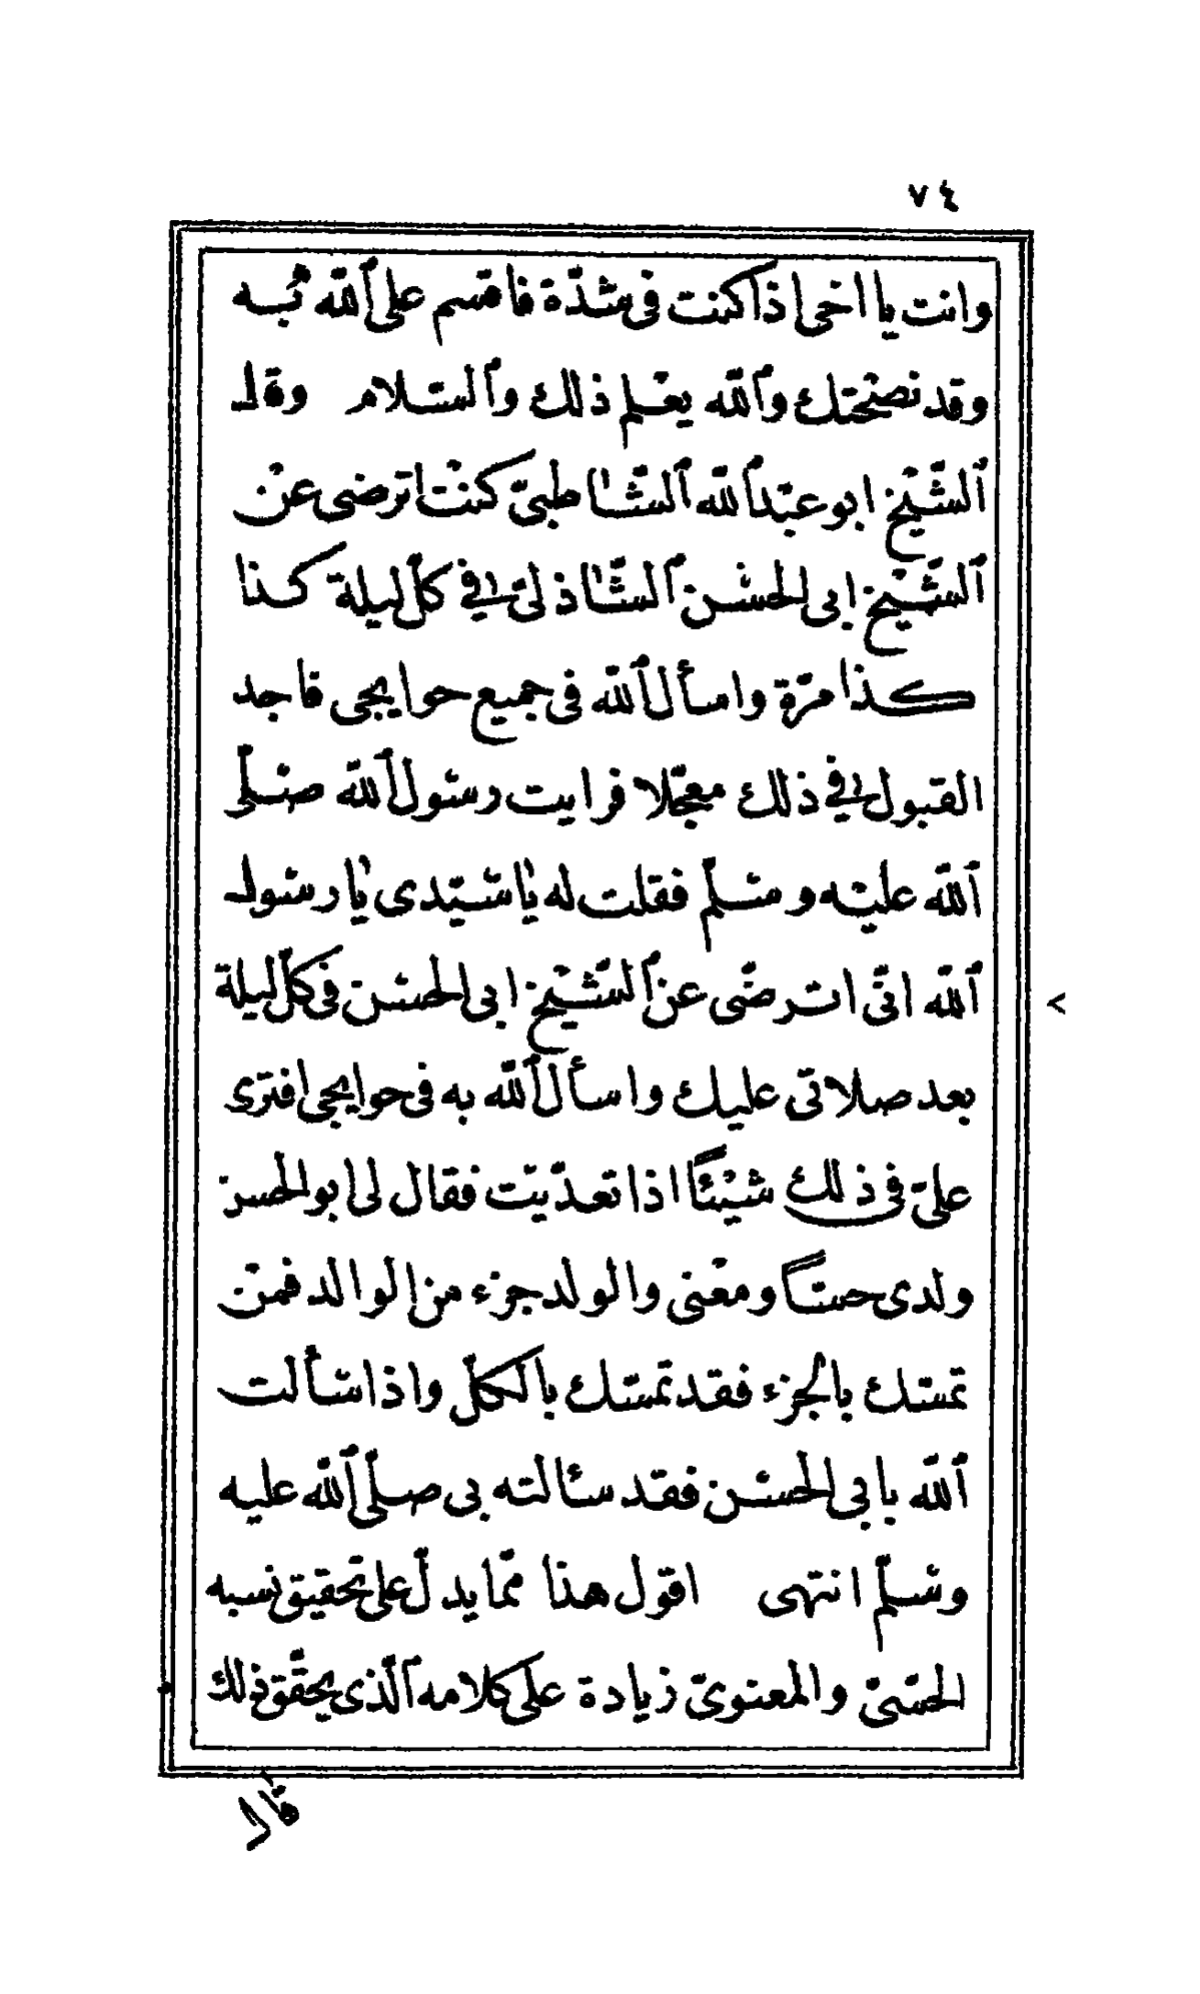 ٧٤
وانت يا اخى اذا كنت فى شدّة فاقسم على ٱللّه به
وقد نصحتك وٱللّه يعْلم ذلك وٱلسّلام وقال
ٱلشّيْخ ابو عبْد ٱللّه ٱلشّاطبىّ كنْت اترضى عنْ
ٱلشّيْخ ابى الحسْن ٱلشّاذلىّ فى كلّ ليلة كذا
كذا مرّة واسأل ٱللّه فى جميع حوايجى فاجد
القبول فى ذلك معجّلا فرايت رسول ٱللّه صلّى
ٱللّه عليْه وسلّم فقلت له يا سيّدى يا رسول
ٱللّه انّى اترضّى عن ٱلشّيْخ ابى الحسن فى كلّ ليلة
بعد صلاتى عليك واسأل ٱللّه به فى حوايجى افترى
علىّ فى ذلك شيْئًا اذا تعدّيت فقال لى ابو الحسن
ولدى حسّاً ومعْنى والولد جزء من الوالد فمنْ
تمسّك بالجزء فقد تمسّك بالكلّ واذا سألت
ٱللّه بابى الحسن فقد سألته بى صلّى ٱللّه عليه
وسلّم انتهى اقول هذا ممّا يدلّ على تحقيق نسبه
الحسّىّ والمعنوىّ زيادة على كلامه ٱلّذى يحقّق ذلك
قال